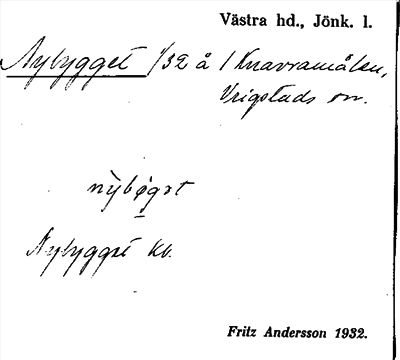 Västra hd., Jönk. l.
Nybygget 1/32 å 1 Knavramålen,
Vrigstads sn.
nỳbøgət
Nybygget kb.
Fritz Andersson 1932.